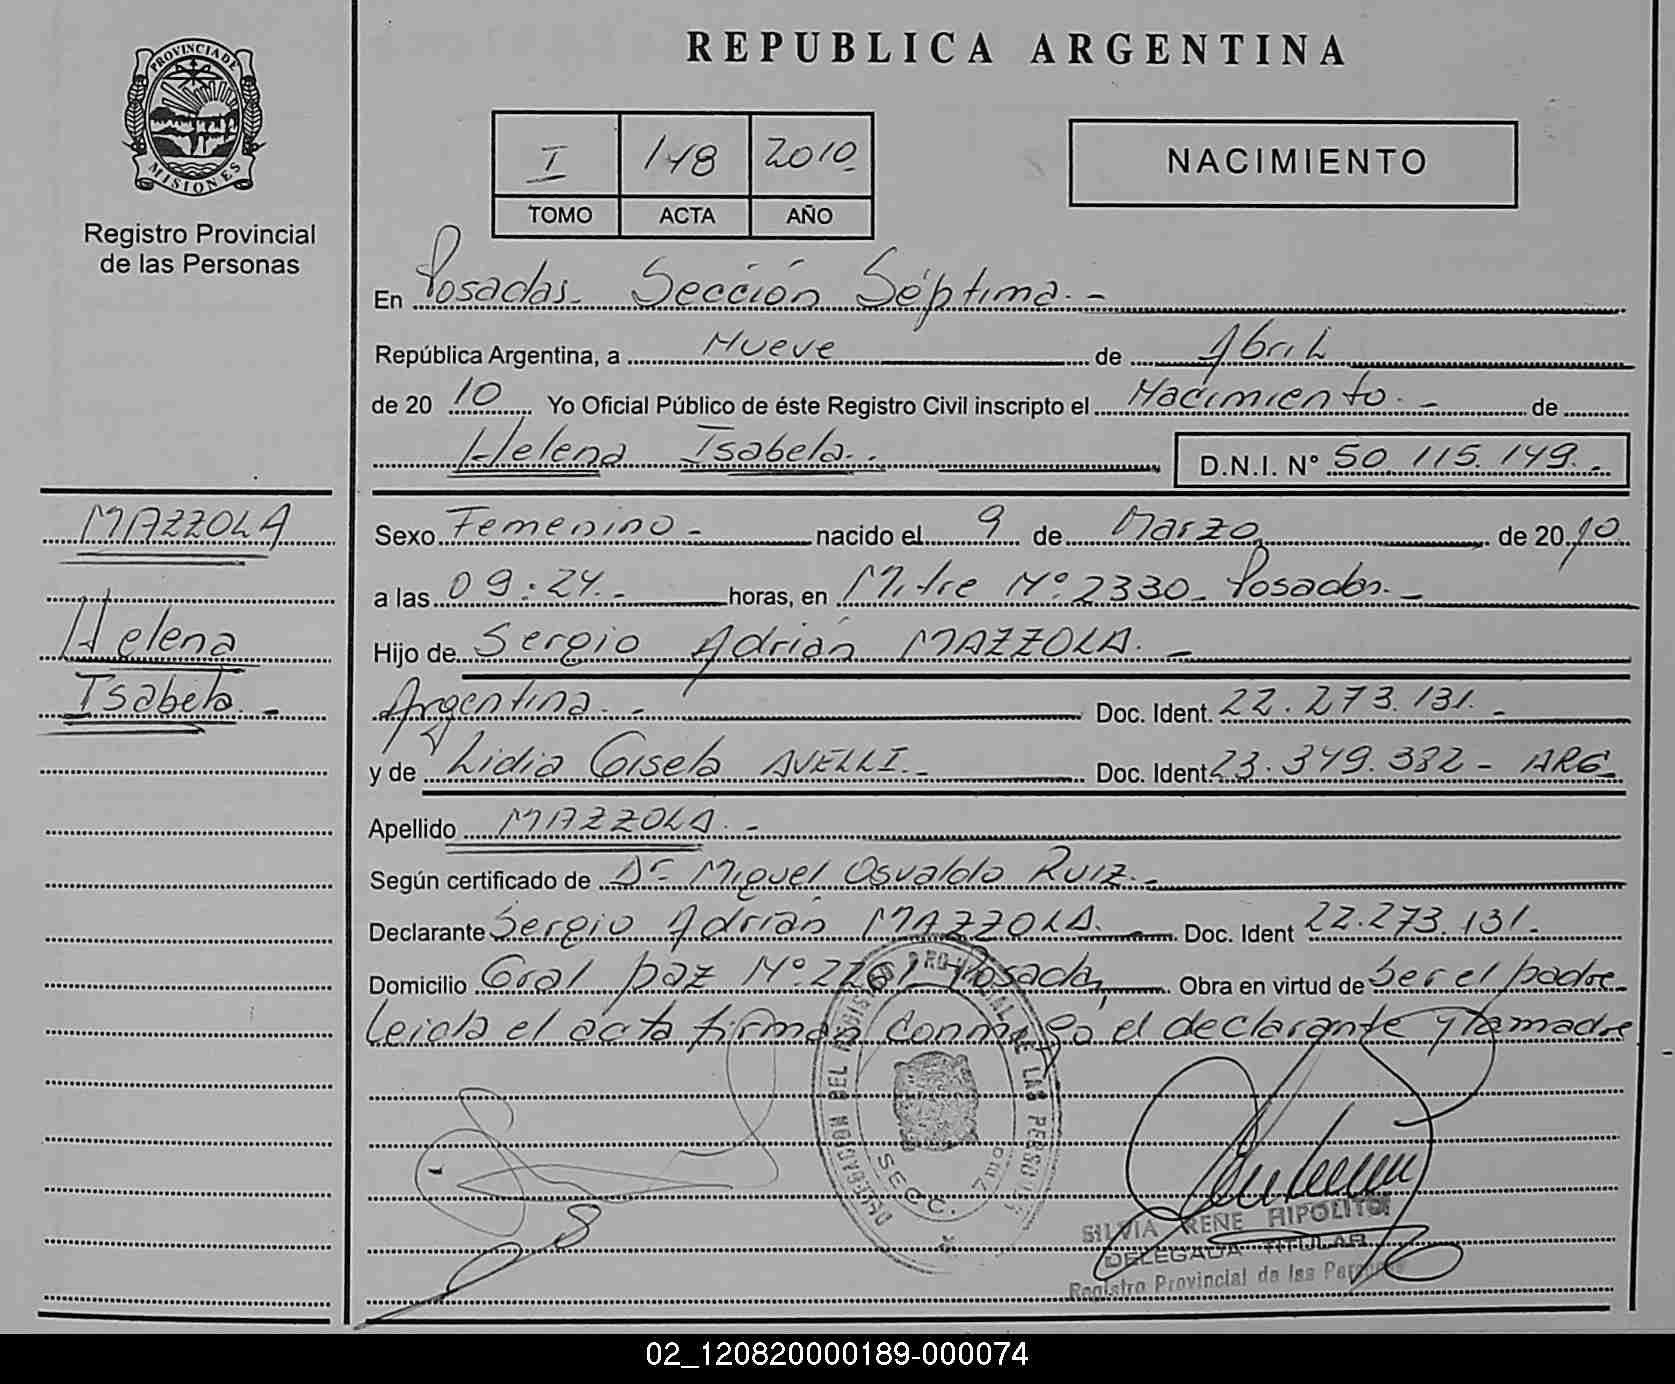 REPUBLICA ARGENTINA
PROVINCIA DE
MISIONES
Registro Provincial
de las Personas
I 148 2010
TOMO ACTA AÑO
NACIMIENTO
En Posadas. Sección Séptima.-
República Argentina, a Nueve de Abril
de 20 10 Yo Oficial Público de éste Registro Civil inscripto el Nacimiento.- de
Helena Isabela.- D.N.I. N° 50.115.149.-
MAZZOLA
Helena
Isabela.-
Sexo Femenino.- nacido el 9 de Marzo de 2010
a las 09:24.- horas, en Mitre N° 2330. Posadas.-
Hijo de Sergio Adrián MAZZOLA.-
Argentina.- Doc. Ident. 22.273.131.-
y de Lidia Gisela AVELLI.- Doc. Ident 23.349.382- ARG-
Apellido MAZZOLA.-
Según certificado de Dr. Miguel Osvaldo Ruiz.-
Declarante Sergio Adrián MAZZOLA. Doc. Ident 22.273.131.
Domicilio Gral paz N° 2261 Posadas, Obra en virtud de Ser el padre
leida el acta firman conmigo el declarante y la madre
SECC. 7ma
SILVIA RENE HIPOLITO
DELEGADA TITULAR
Registro Provincial de las Personas
02_120820000189-000074